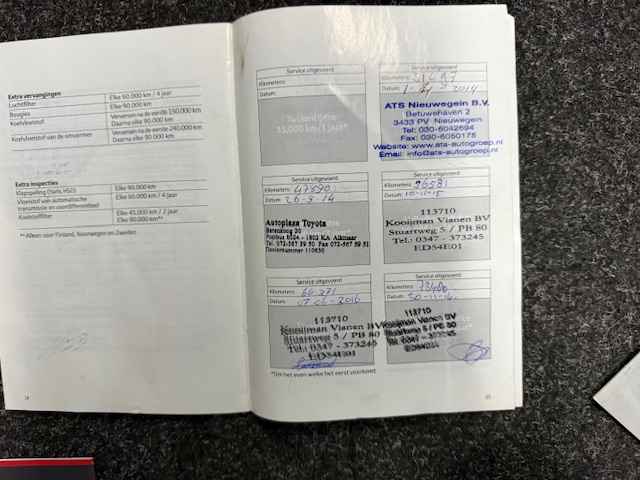 Extra vervangingen
Luchtfilter Elke 60.000 km / 4 jaar
Bougies Elke 90.000 km
Koelvloeistof Verversen na de eerste 150.000 km
Daarna elke 90.000 km
Koelvloeistof van de omvormer Verversen na de eerste 240.000 km
Daarna elke 90.000 km
Extra inspecties
Klepspeling Elke 90.000 km
Vloeistof van automatische
transmissie en voordifferentieel Elke 60.000 km / 4 jaar
Koolstoffilter Elke 45.000 km / 2 jaar
Elke 90.000 km**
** Alleen voor Finland, Noorwegen en Zweden
Service uitgevoerd
Kilometers:
Datum:
15.000 km/1 jaar*
Service uitgevoerd
Kilometers:
Datum: 2014
ATS Nieuwegein B.V.
Betuwehaven 2
3433 PV Nieuwegein
Tel: 030-6042694
Fax: 030-6050175
Website: www.ats-autogroep.nl
Email: info@ats-autogroep.nl
Service uitgevoerd
Kilometers: 47890
Datum: 26-8-14
Autoplaza Toyota
Berenkoog 20
Postbus 8024 - 1802 KA Alkmaar
Tel. 072-567 59 50 Fax 072-567 59 51
Dealernummer 110630
Service uitgevoerd
Kilometers: 56581
Datum: 10-11-15
113710
Kooijman Vianen BV
Stuartweg 5 / PB 80
Tel.: 0347 - 373245
ED54E01
Service uitgevoerd
Kilometers: 66.271
Datum: 07-06-2016
113710
Kooijman Vianen BV
Stuartweg 5 / PB 80
Tel.: 0347 - 373245
ED54E01
Service uitgevoerd
Kilometers: 73406
Datum:
113710
Kooijman Vianen BV
Stuartweg 5 / PB 80
Tel.: 0347 - 373245
*Tot het even welke het eerst voorkomt